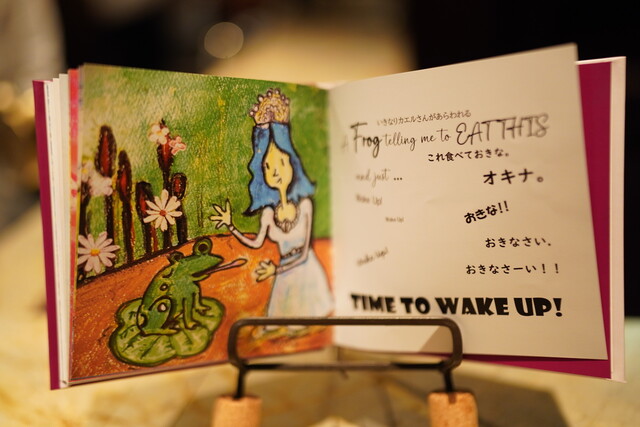 いきなりカエルさんがあらわれる
A Frog telling me to EAT THIS
これ食べておきな。
and just ...
オキナ。
Wake Up!
おきな!!
Wake Up!
おきなさい。
Wake Up!
おきなさーい！！
TIME TO WAKE UP!